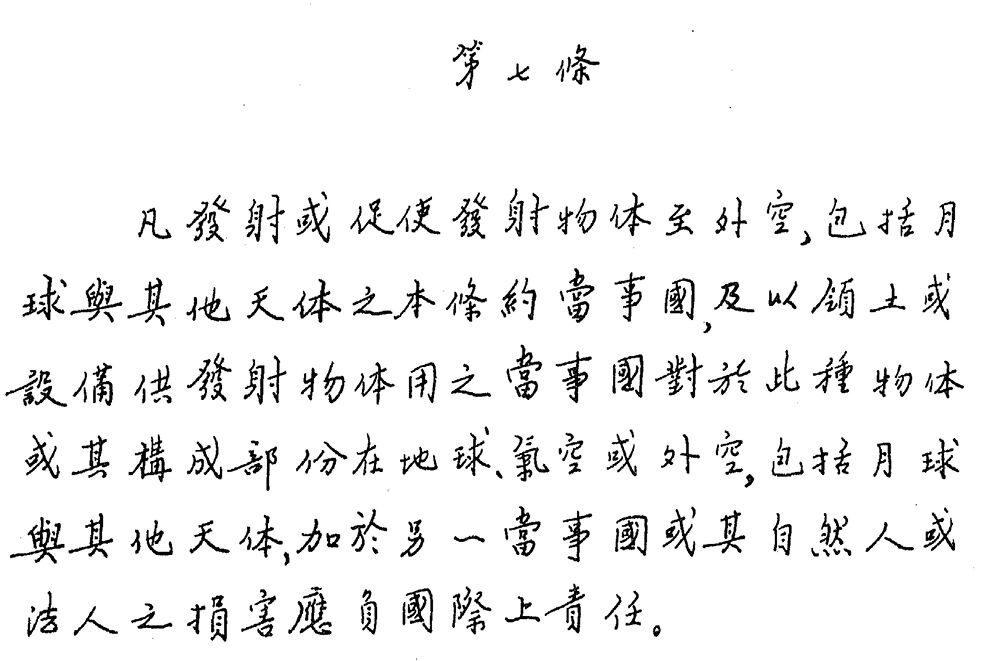 第七條
凡發射或促使發射物体至外空,包括月
球與其他天体之本條約當事國,及以領土或
設備供發射物体用之當事國對於此種物体
或其構成部份在地球、氣空或外空,包括月球
與其他天体,加於另一當事國或其自然人或
法人之損害應負國際上責任。